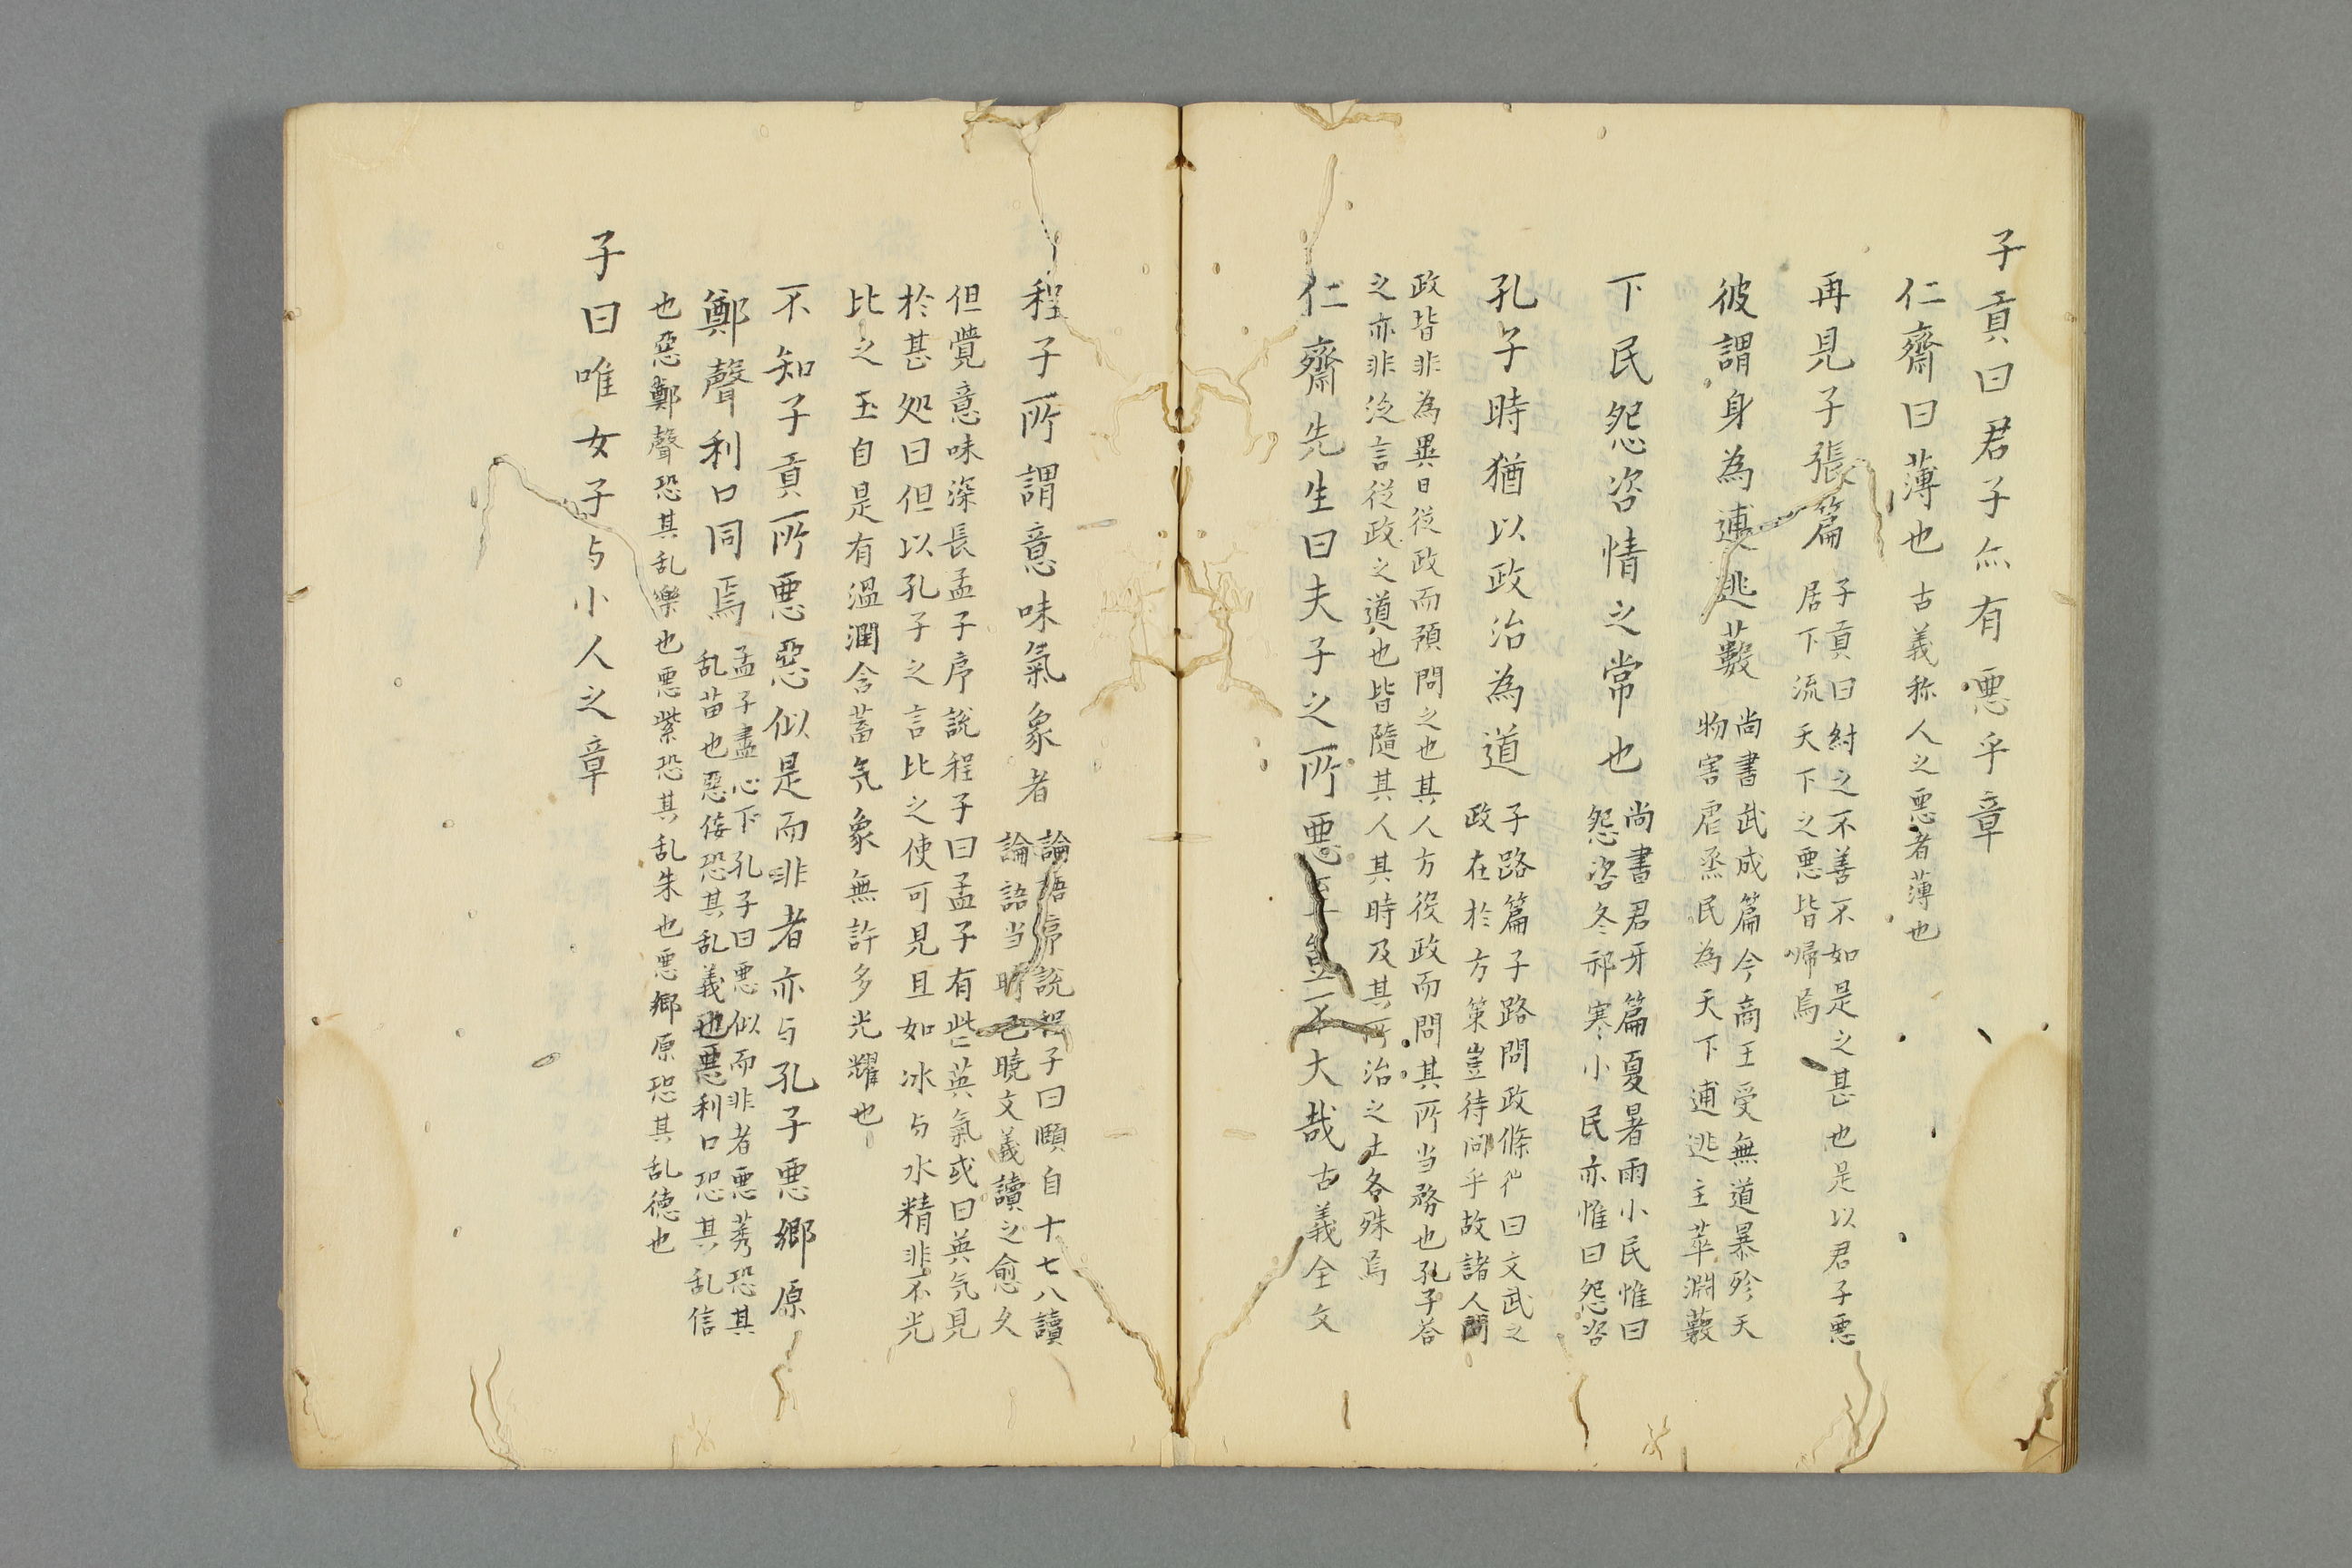 子貢曰君子亦有悪乎章
仁齋曰薄也 古義称人之悪者薄也
再見子張篇 子貢曰紂之不善不如是之甚也是以君子悪
居下流天下之悪皆帰焉
彼謂身為逋逃藪 尚書武成篇今商王受無道暴殄天
物害虐烝民為天下逋逃主萃淵藪
下民怨咨情之常也 尚書君牙篇夏暑雨小民惟曰
怨咨冬祁寒小民亦惟曰怨咨
孔子時猶以政治為道 子路篇子路問政條仲曰文武之
政在於方策豈待問乎故諸人問
政皆非為異日従政而預問之也其人方役政而問其所当務也孔子荅
之亦非泛言従政之道也皆隨其人其時及其所治之土各殊焉
仁齋先生曰夫子之所悪 豈不大哉 古義全文
程子所謂意味氣象者 論語序説程子曰頤自十七八讀
論語当時已曉文義讀之愈久
但覺意味深長孟子序説程子曰孟子有些英氣或曰英气見
於甚処曰但以孔子之言比之使可見且如冰与水精非不光
比之玉自是有溫潤含蓄気象無許多光耀也
不知子貢所悪惡似是而非者亦与孔子悪郷原
鄭聲利口同焉 孟子盡心下孔子曰悪似而非者悪莠恐其
乱苗也惡佞恐其乱義也悪利口恐其乱信
也惡鄭聲恐其乱樂也悪紫恐其乱朱也悪郷原恐其乱徳也
子曰唯女子与小人之章